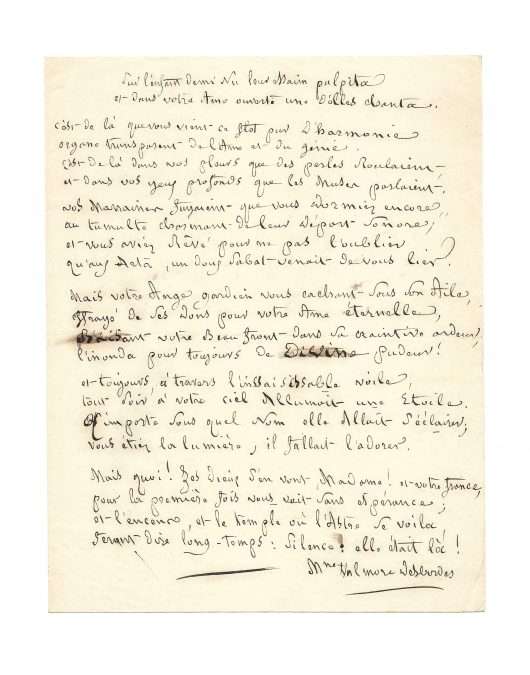 Sur l'enfant demi Nu leur Main palpita
et dans votre Ame ouverte une d'Elles chanta.
C'est de là que vous vient ce flot pur D'harmonie
organe transparent de l'Ame et du génie.
C'est de là dans vos pleurs que des perles Roulaient,
et dans vos yeux profonds que les Muses parlaient.
vos Marraines fuyaient que vous Dormiez encore,
au tumulte charmant de leur Départ Sonore;
et vous aviez Rêvé pour ne pas l'oublier
qu'aux un doux Sabat venait de vous lier?
Mais votre Ange gardien vous cachant Sous Son Aîle,
Effrayé de Ses Dons pour votre Ame éternelle,
Baisant votre Beau front dans Sa craintive ardeur,
l'inonda pour toujours de Divine pudeur!
et toujours, à travers l'inssaisissable voile,
tout Soir à votre ciel Allumait une Etoile.
N'importe Sous quel Nom elle Allait S'éclairer;
vous étiez la lumière, il fallait l'adorer.
Mais quoi! Les Dieux S'en vont, Madame! et votre france,
pour la première fois vous voit Sans espérance;
et l'encens, et le temple où l'Astre Se voila,
Feront Dire long-temps: Silence: elle était là!
Mme Valmore Desbordes